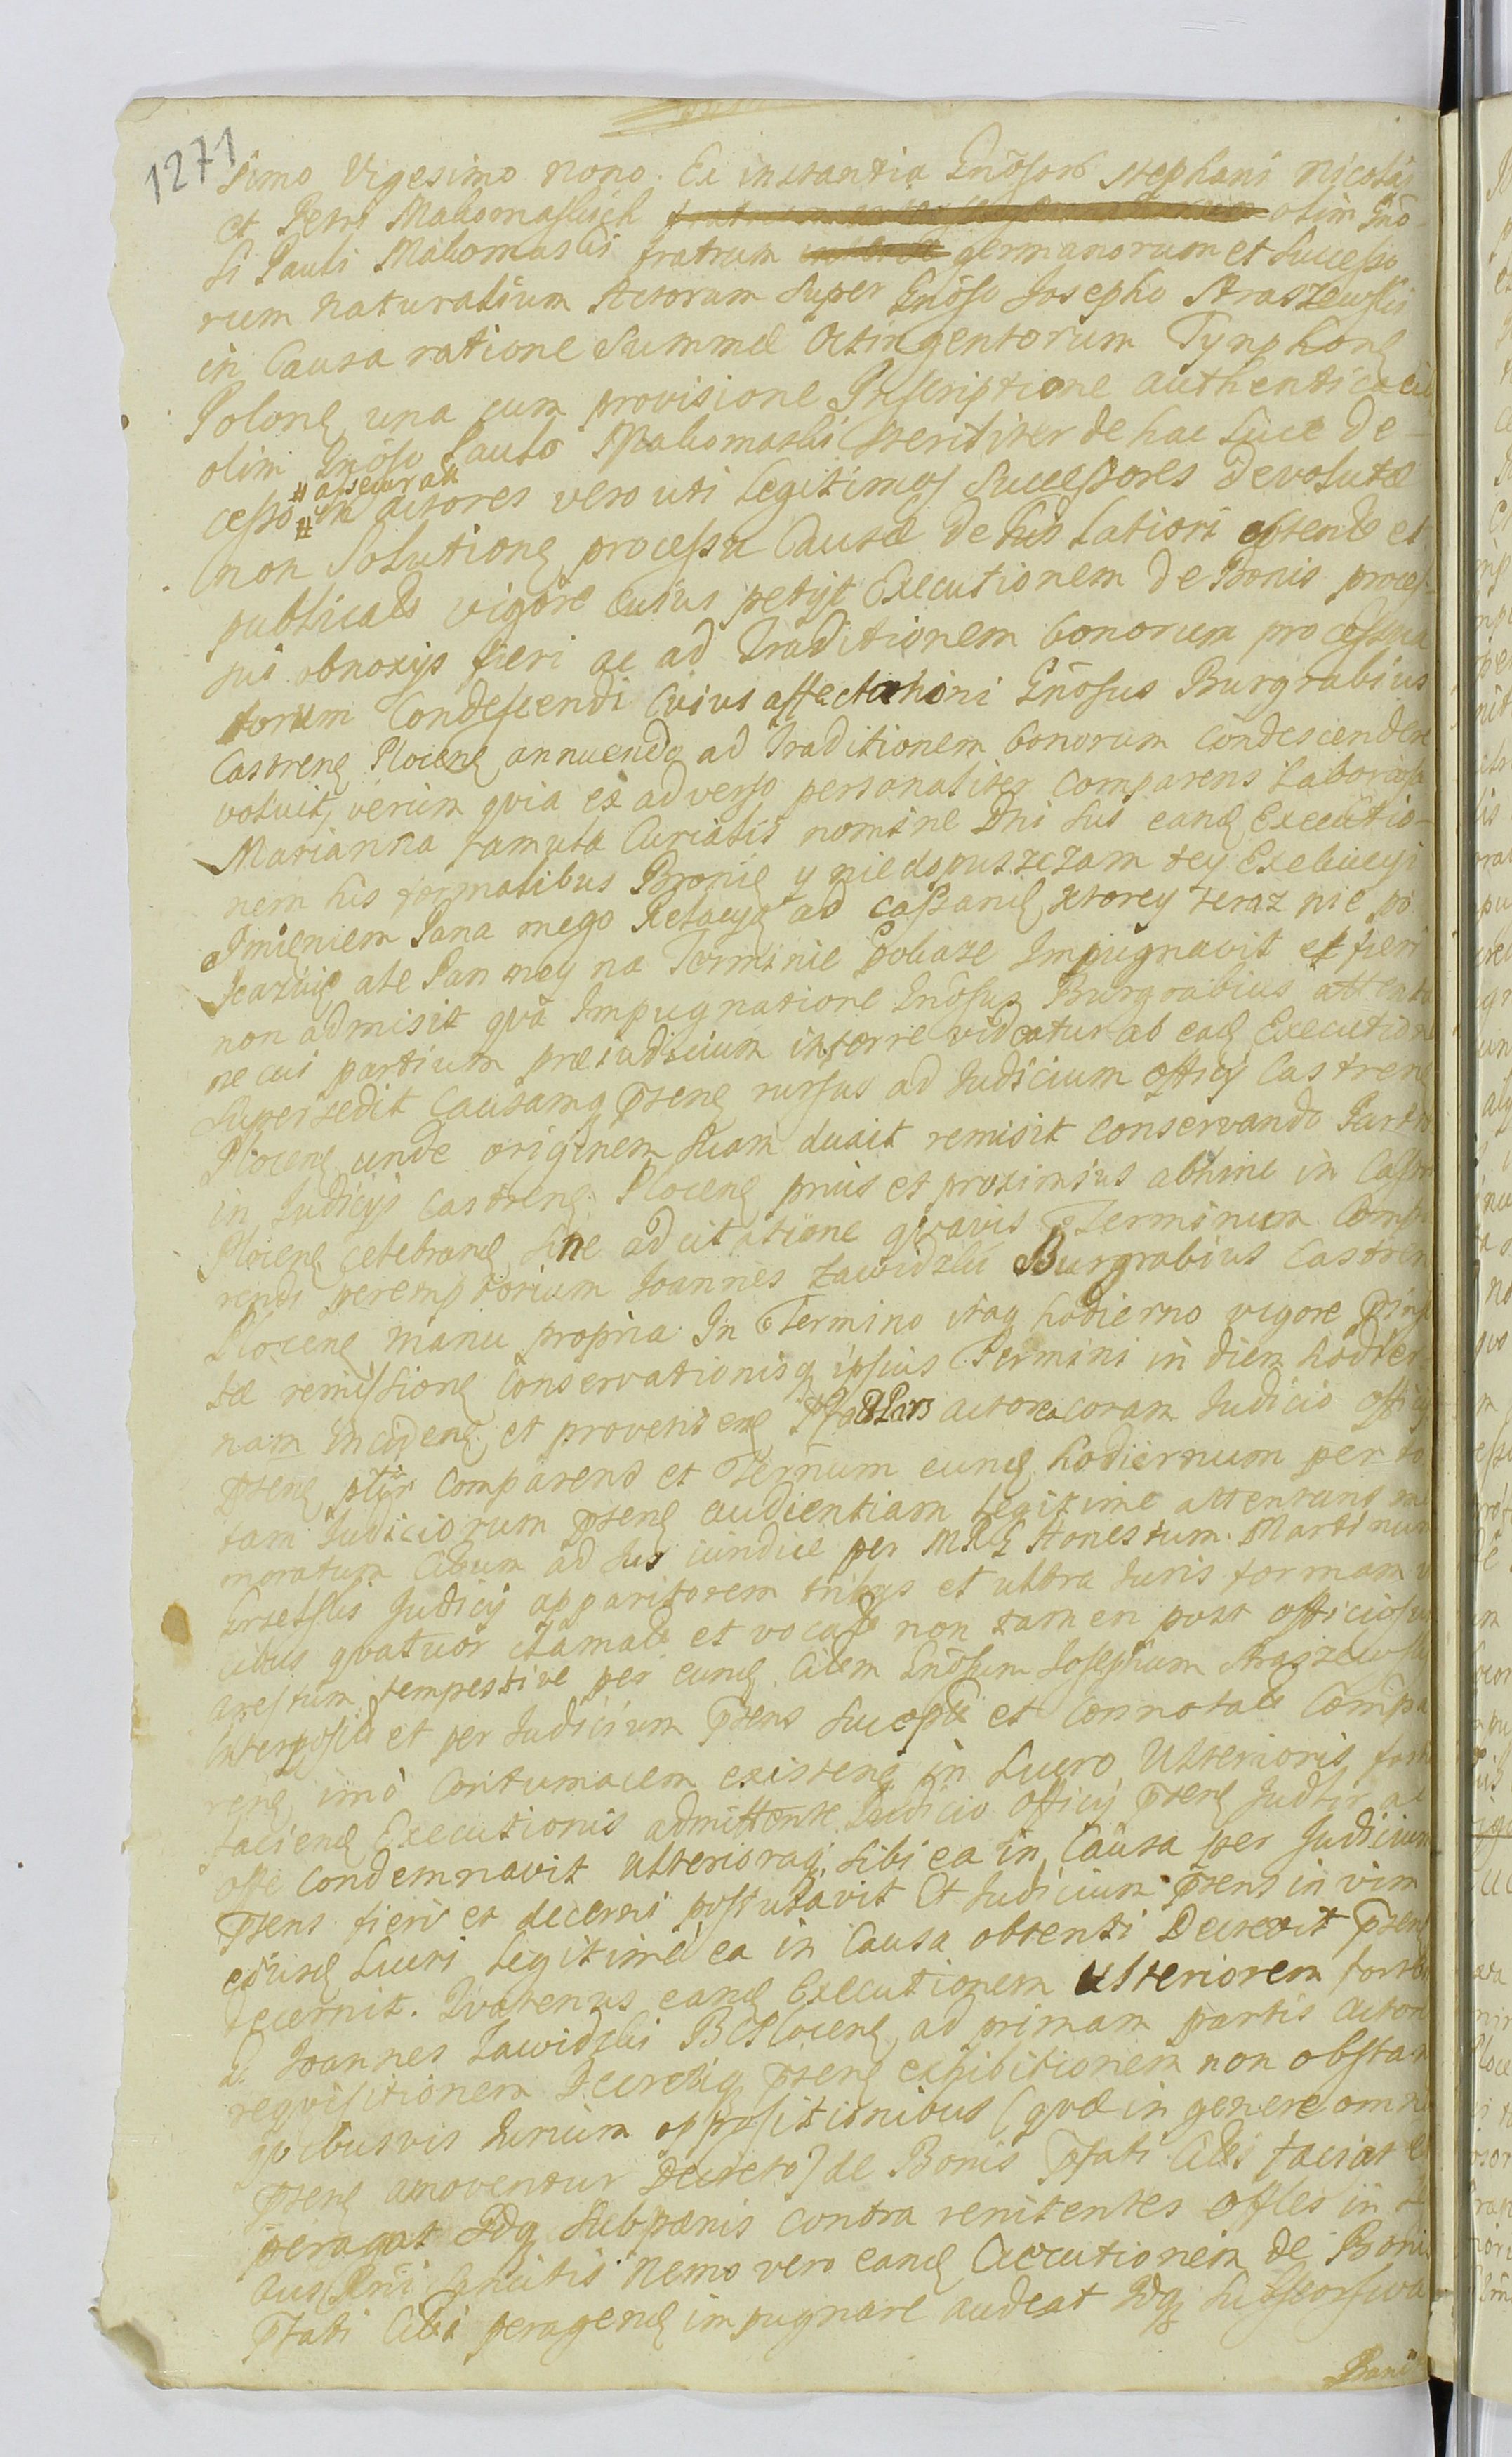 1271
simo Vigesimo nono. Ex instantia Gnõsorũ Stephani Nicolai
et Petri Makomaskich olim Gnõ-
si Pauli Makomaski fratrum germanorum et Successo
rum naturalium Actorum Super Gnõso Josepho Straszewski
in Causa ratione Summæ Octingentorum Tynphonę
Polonę una cum provisione Inscriptione authentica
olim Gnõso Paulo Makomaski steriliter de hac Luce de-
# assecurati
cesso # in Actores vero uti legitimos Successores devolutæ
non Solutionę processu Causæ de his latiori obtento et
publicato vigore cuius petijt Executionem de Bonis proces-
sui obnoxijs fieri ac ad Traditionem bonorum processua
torum Condescendi Cuius affectationi Gnõsus Burgrabius
Castrenę Plocenę annuendo ad Traditionem bonorum condescendere
voluit, verum qvia ex adverso personaliter comparens Laboriosa
Marianna famula Curialis nomine Dni sui eandę Executio-
nem his formalibus Bronię y niedopuszczam tey Exekucyi
Imieniem Pana mego Relacyą ad cassandę ktorey teraz nie po
kazuię ale Pan moy na Terminie pokaze Impugnavit et fieri
non admisit qvâ Impugnatione Gnõsus Burgrabius attento
ne cui partium præiudicium inferre videatur ab eadę Executione
Supersedit Causamqȝ pñsenę rursus ad Judicium officij Castrenę
Plocenę unde originem suam duxit remisit conservando Partib
in Judicijs Castrenę Plocenę prius et proximius abhinc in Castro
Plocenę celebranę sine adcitatione qvavis Terminum Compa
rendi peremptorium Joannes Zawidzki Burgrabius Castren
Plocenę manu propria. In Termino itaqȝ hodierno vigore
tæ remissionę conservationisqȝ ipsius Termini in diem hodier
nam incidenę et provenienę Pars actorea coram Judicio officij
pñsenę comparens et Ternum eundę hodiernum per to
tam Judiciorum pñsenę audientiam legitime attentans me
moratum Citum ad Jus iuridice per Honestum Martinum
Judicij apparitorem tribqȝ et ultra Juris formam vi
cibus qvatuor clamatũ et vocatũ non tamen post officiosum
arestum tempestive per eundę Citem Gnõsum Josephum Straszewski
interpositũ et per Judicium pñsens Susceptũ et connotatũ Compa
renę imò Contumacem existenę in Lucro Ulterioris fortis
faciendę Executionis admittente Judicio officij pñsenę Judtr ac
offe condemnavit ulterioraqȝ sibi ea in Causa per Judicium
pñsens fieri et decerni postulavit Et Judicium pñsens in vim
eiusdę Lucri legitime ea in Causa obtenti Decrevit pñsenę
decernit. Qvatenus eandę Executionem ulteriorem fortem
G. Joannes Zawidzki BCPlocenę ad primam partis actoreę
reqvisitionem Decretiqȝ pñsenę exhibitionem non obstan
qvibusvis Jurium oppositionibus (qvæ in genere omnes
pñsenę amoventur Decreto) de Bonis pfati Citi faciat et
peragat Idqȝ Subpænis contra renitentes offles in
sancitis Nemo vero eandę Executionem de Bonis
pfati Citi peragendę impugnare audeat Idqȝ
Banit